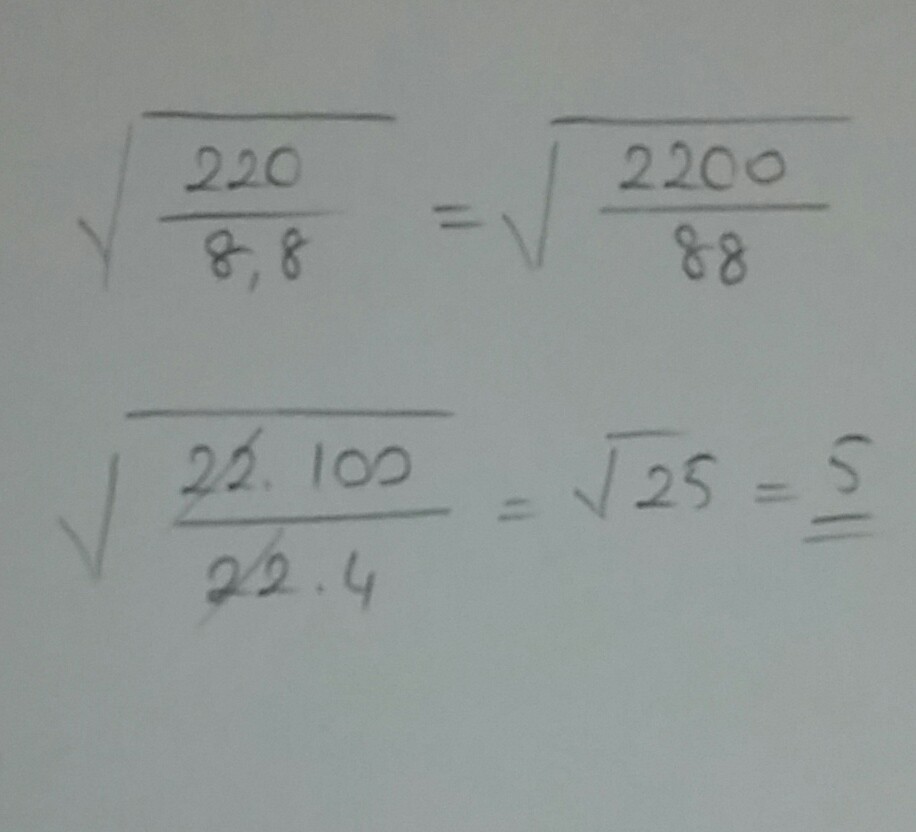 √(220/8,8) = √(2200/88)
√(22.100/22.4) = √25 = 5